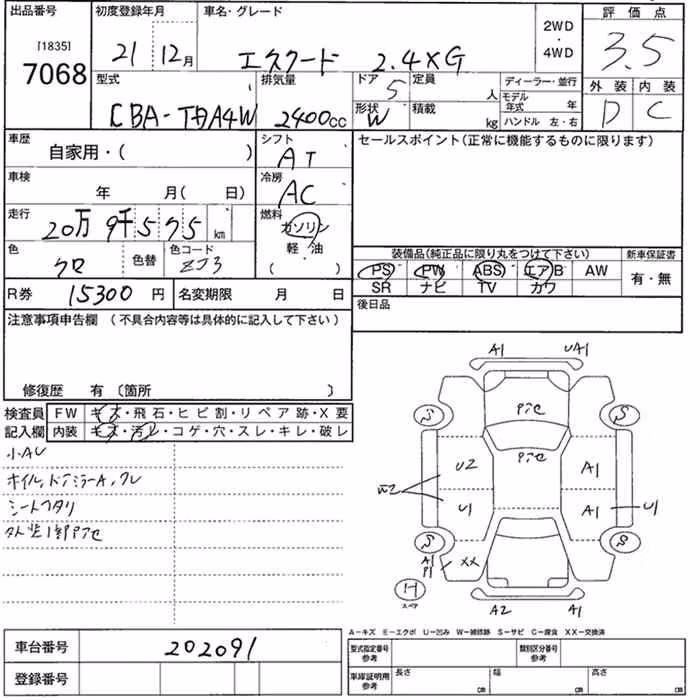 出品番号 初度登録年月 車名・グレード 2WD ・ 4WD 評価点
[1835]
7068
21 12月 エスクード 2.4XG 3.5
型式 排気量 ドア 5 定員 人 ディーラー・並行 外装 内装
モデル年式 年
CBA-TDA4W 2400cc 形状 W 積載 kg ハンドル 左・右 D C
車歴 自家用・( ) シフト AT セールスポイント(正常に機能するものに限ります)
車検 年 月( 日) 冷房 AC
走行 20万9千575km 燃料 ガソリン 軽・油 ( )
色 クロ 色替 色コード ZJ3
装備品(純正品に限り丸をつけて下さい) 新車保証書
PS PW ABS エアB AW 有・無
SR ナビ TV カワ
R券 15300円 名変期限 月 日 後日品
注意事項申告欄(不具合内容等は具体的に記入して下さい)
修復歴 有〔箇所 〕
検査員 FW キズ・飛石・ヒビ割・リペア跡・X要
記入欄 内装 キズ・汚レ・コゲ・穴・スレ・キレ・破レ
小AU
ホイル,ドアミラーA,クレ
シートヘタリ
外装1部Pアセ
A1 UA1
Pアセ
S S
Pアセ
U2 A1
W2
U1 A1 U1
S S
A1 P1 XX
H スペア
A2 A1
A-キズ E-エクボ U-凹み W-補修跡 S-サビ C-腐食 XX-交換済
車台番号 202091
型式指定番号 参考 類別区分番号 参考
登録番号
車庫証明用 参考 長さ cm 幅 cm 高さ cm